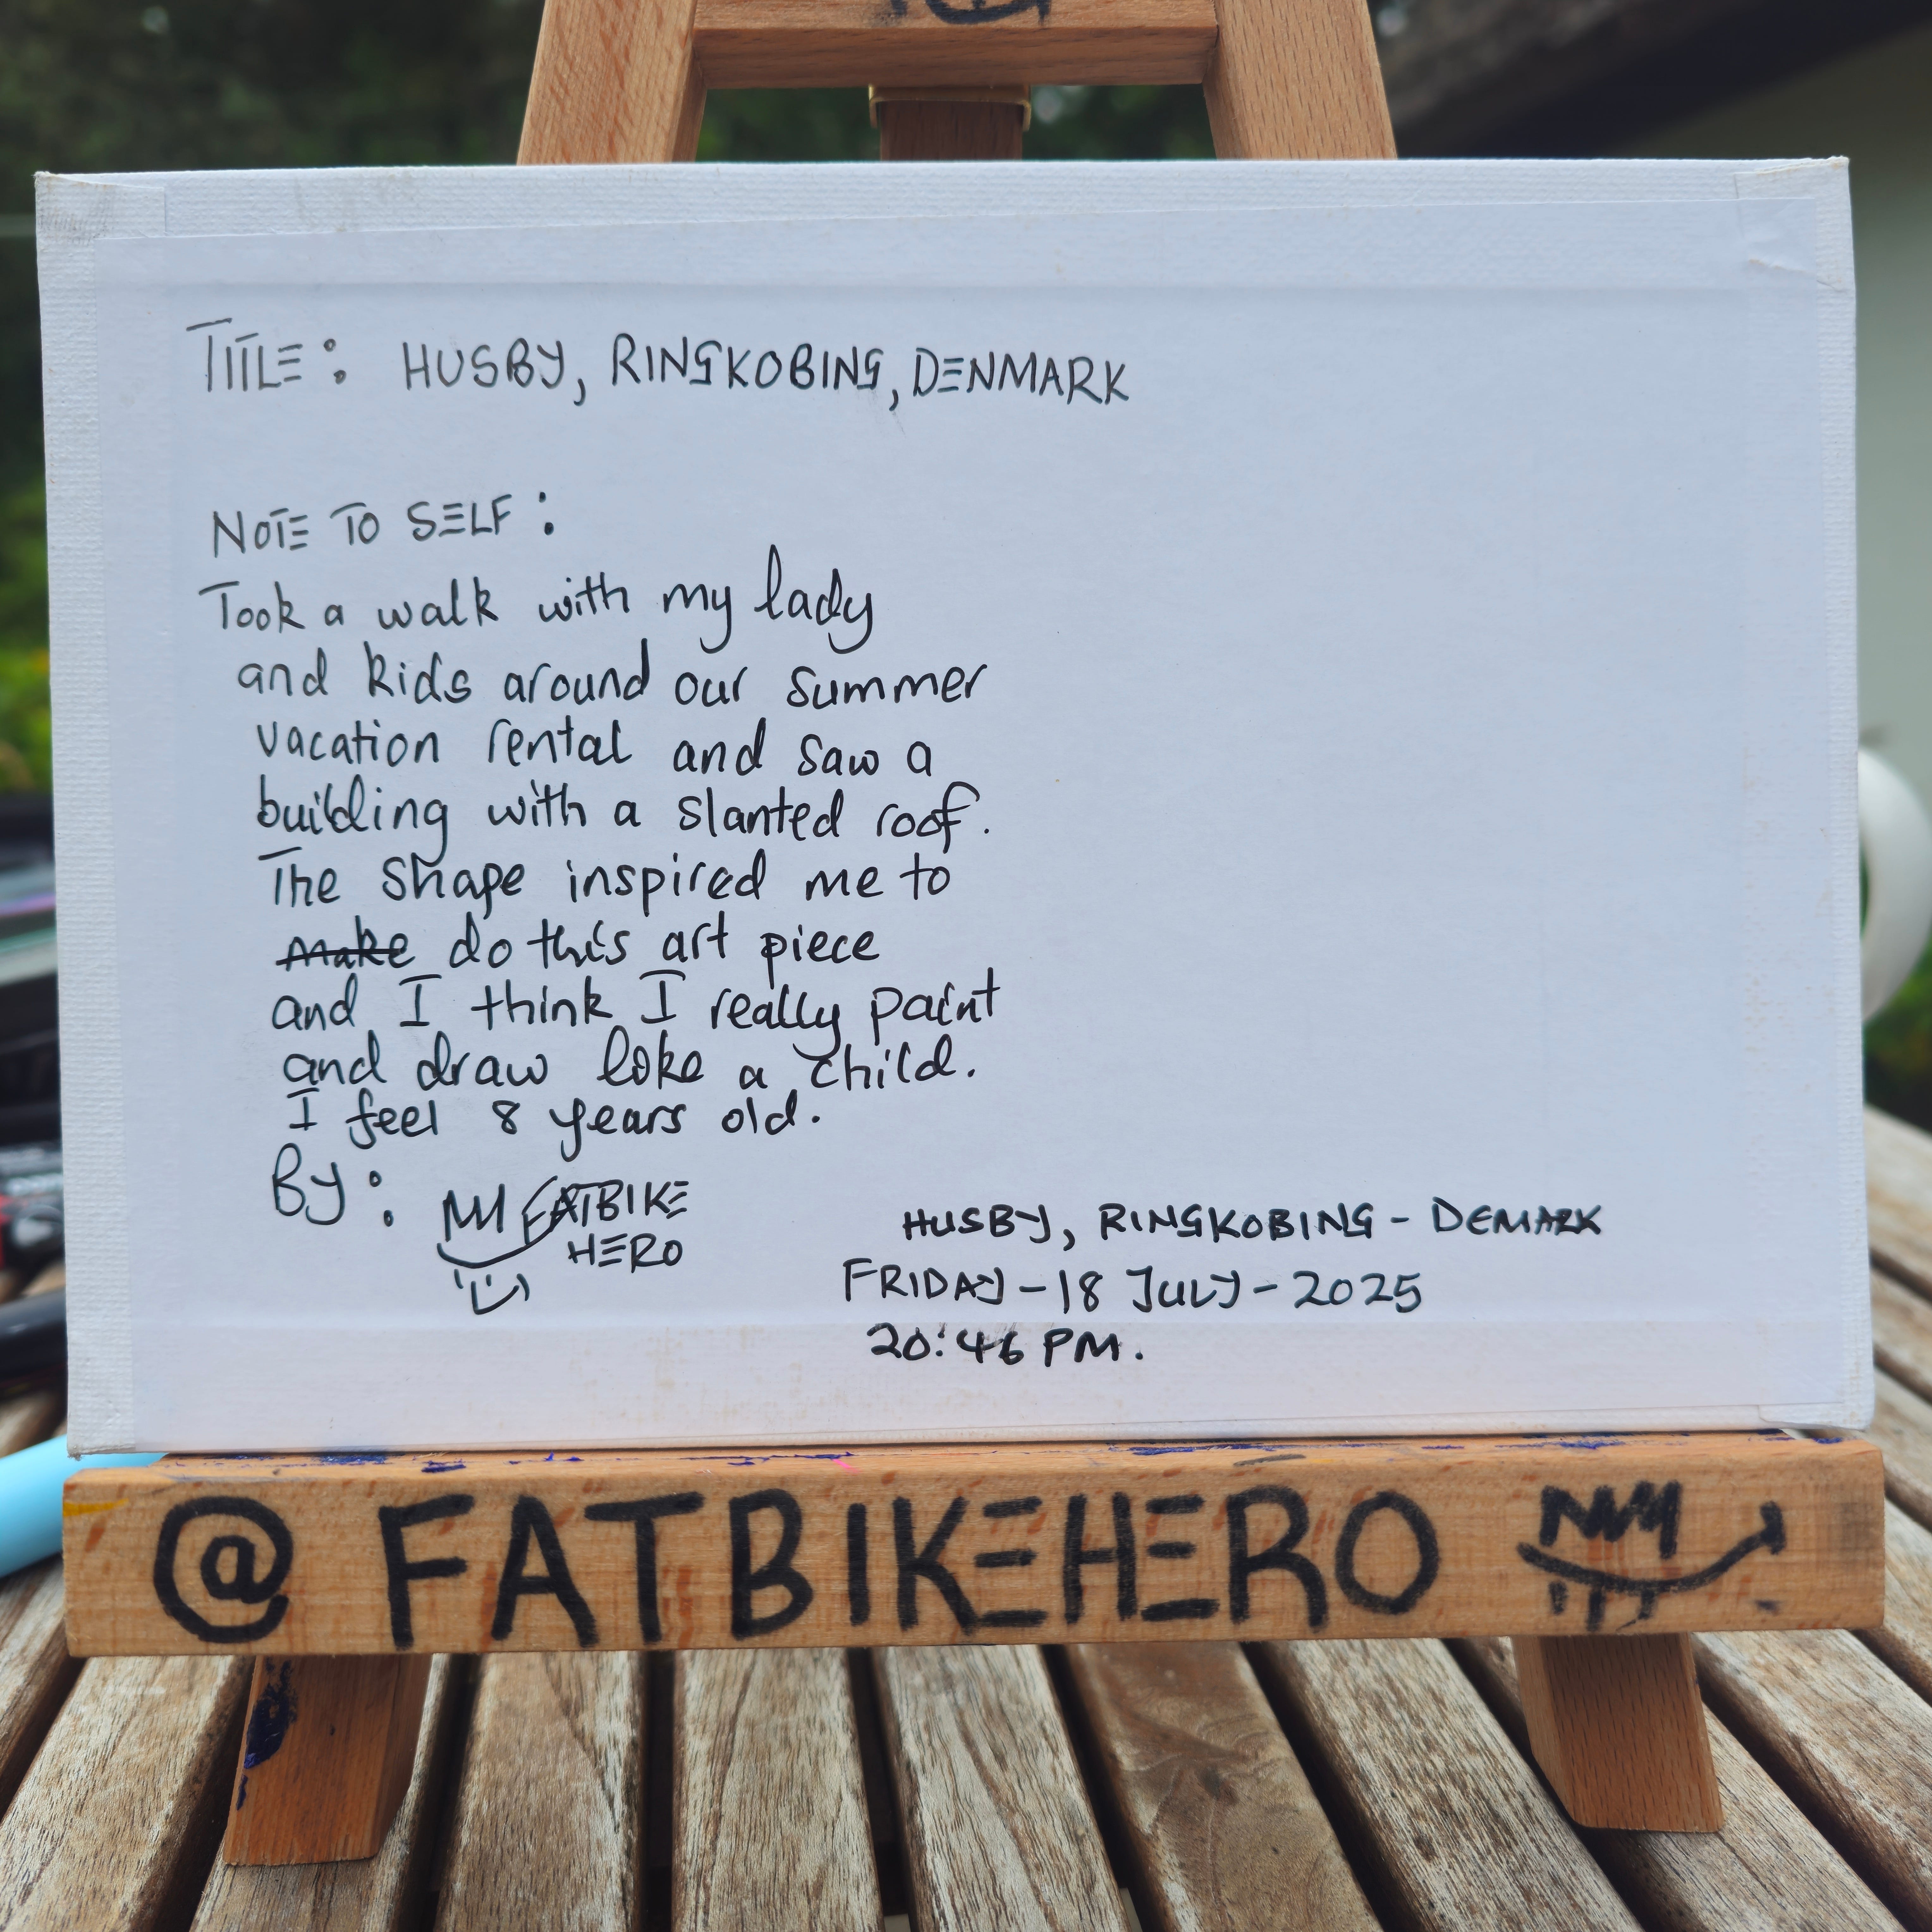 TITLE: HUSBY, RINGKOBING, DENMARK
NOTE TO SELF:
Took a walk with my lady
and kids around our summer
vacation rental and saw a
building with a slanted roof.
The shape inspired me to
make do this art piece
and I think I really paint
and draw like a child.
I feel 8 years old.
By: FATBIKE
HERO
HUSBY, RINGKOBING - DEMARK
FRIDAY - 18 JULY - 2025
20:46 PM.
@FATBIKEHERO